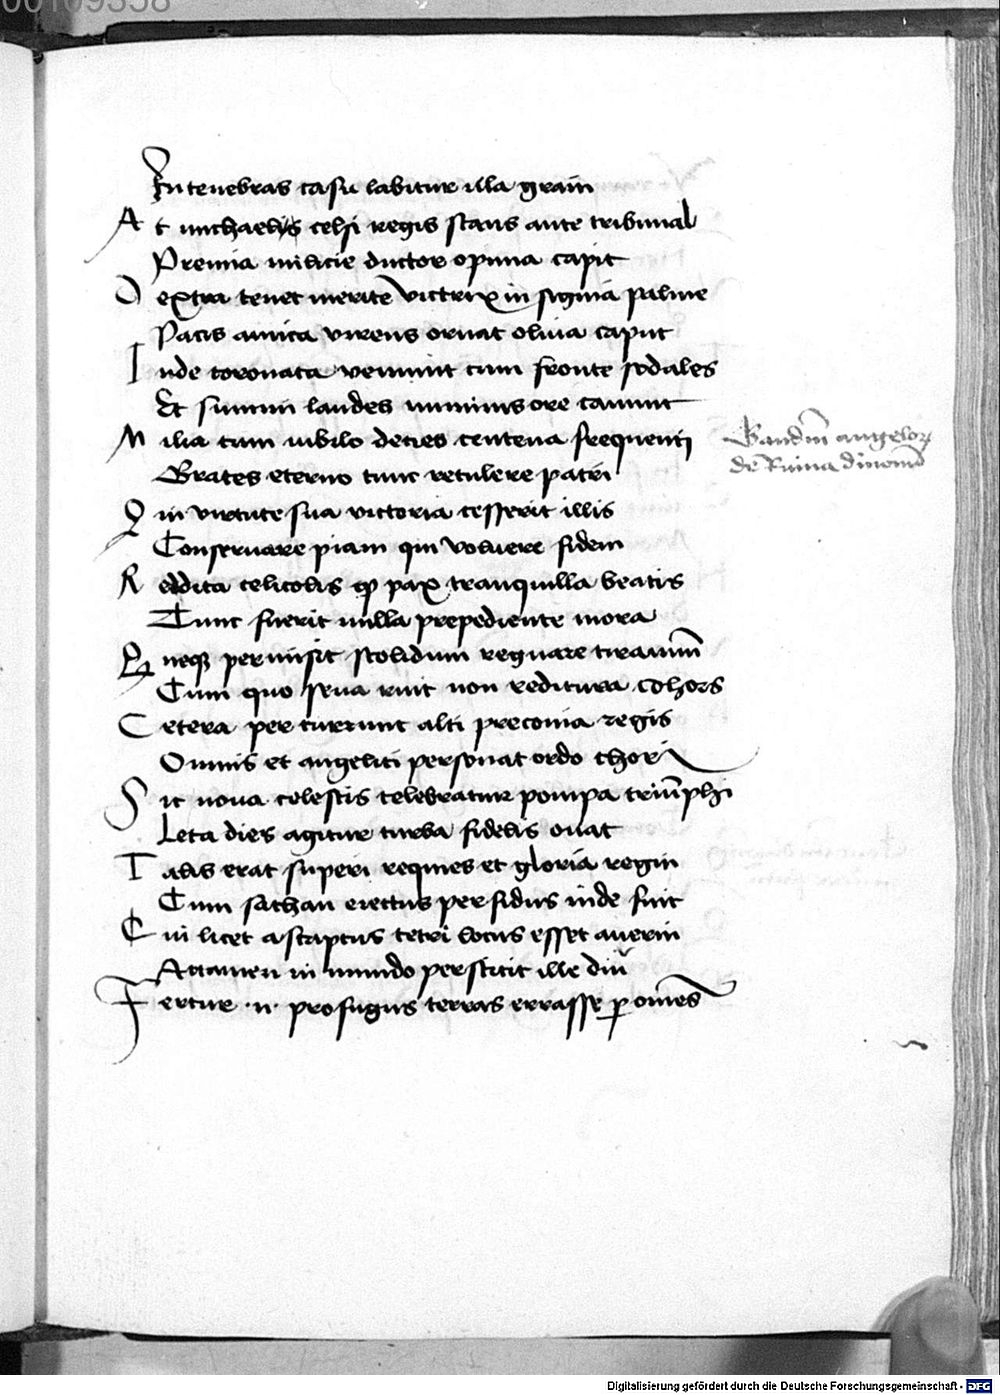 00109358
In tenebras casu labitur illa graui
At michaelis celsi regis stans ante tribunal
Premia milicie ductor opima capit
Dextra tenet merite victrix in signia palme
Pacis amica virens ornat oliua caput
Inde coronata veniunt cum fronte sodales
Et summi laudes numinis ore canunt
Milia cum iubilo decies centena frequenti
Grates eterno tunc retulere patri
Q in virtute sua victoria cesserit illis
Conseruare piam qui voluere fidem
Reddita celicolis qꝫ pax tranquilla beatis
Tunc fuerit nulla prepediente mora
Q neqꝫ permisit stolidum regnare tirannū
Cum quo seua ruit non reditura cohors
Cetera percurrunt alti preconia regis
Omnis et angelici personat ordo chori
Sic noua celestis celebratur pompa triūphi
Leta dies agitur turba fidelis ouat
Talis erat superi requies et gloria regni
Cum sathan eiectus perfidus inde fuit
Cui licet ascriptus tetri locus esset auerni
Attamen in mundo perstitit ille diu
Fertur .n. profugus terras errasse ꝑ omēs
Gaudiū angeloꝝ
de Ruina
Digitalisierung gefördert durch die Deutsche Forschungsgemeinschaft - DFG